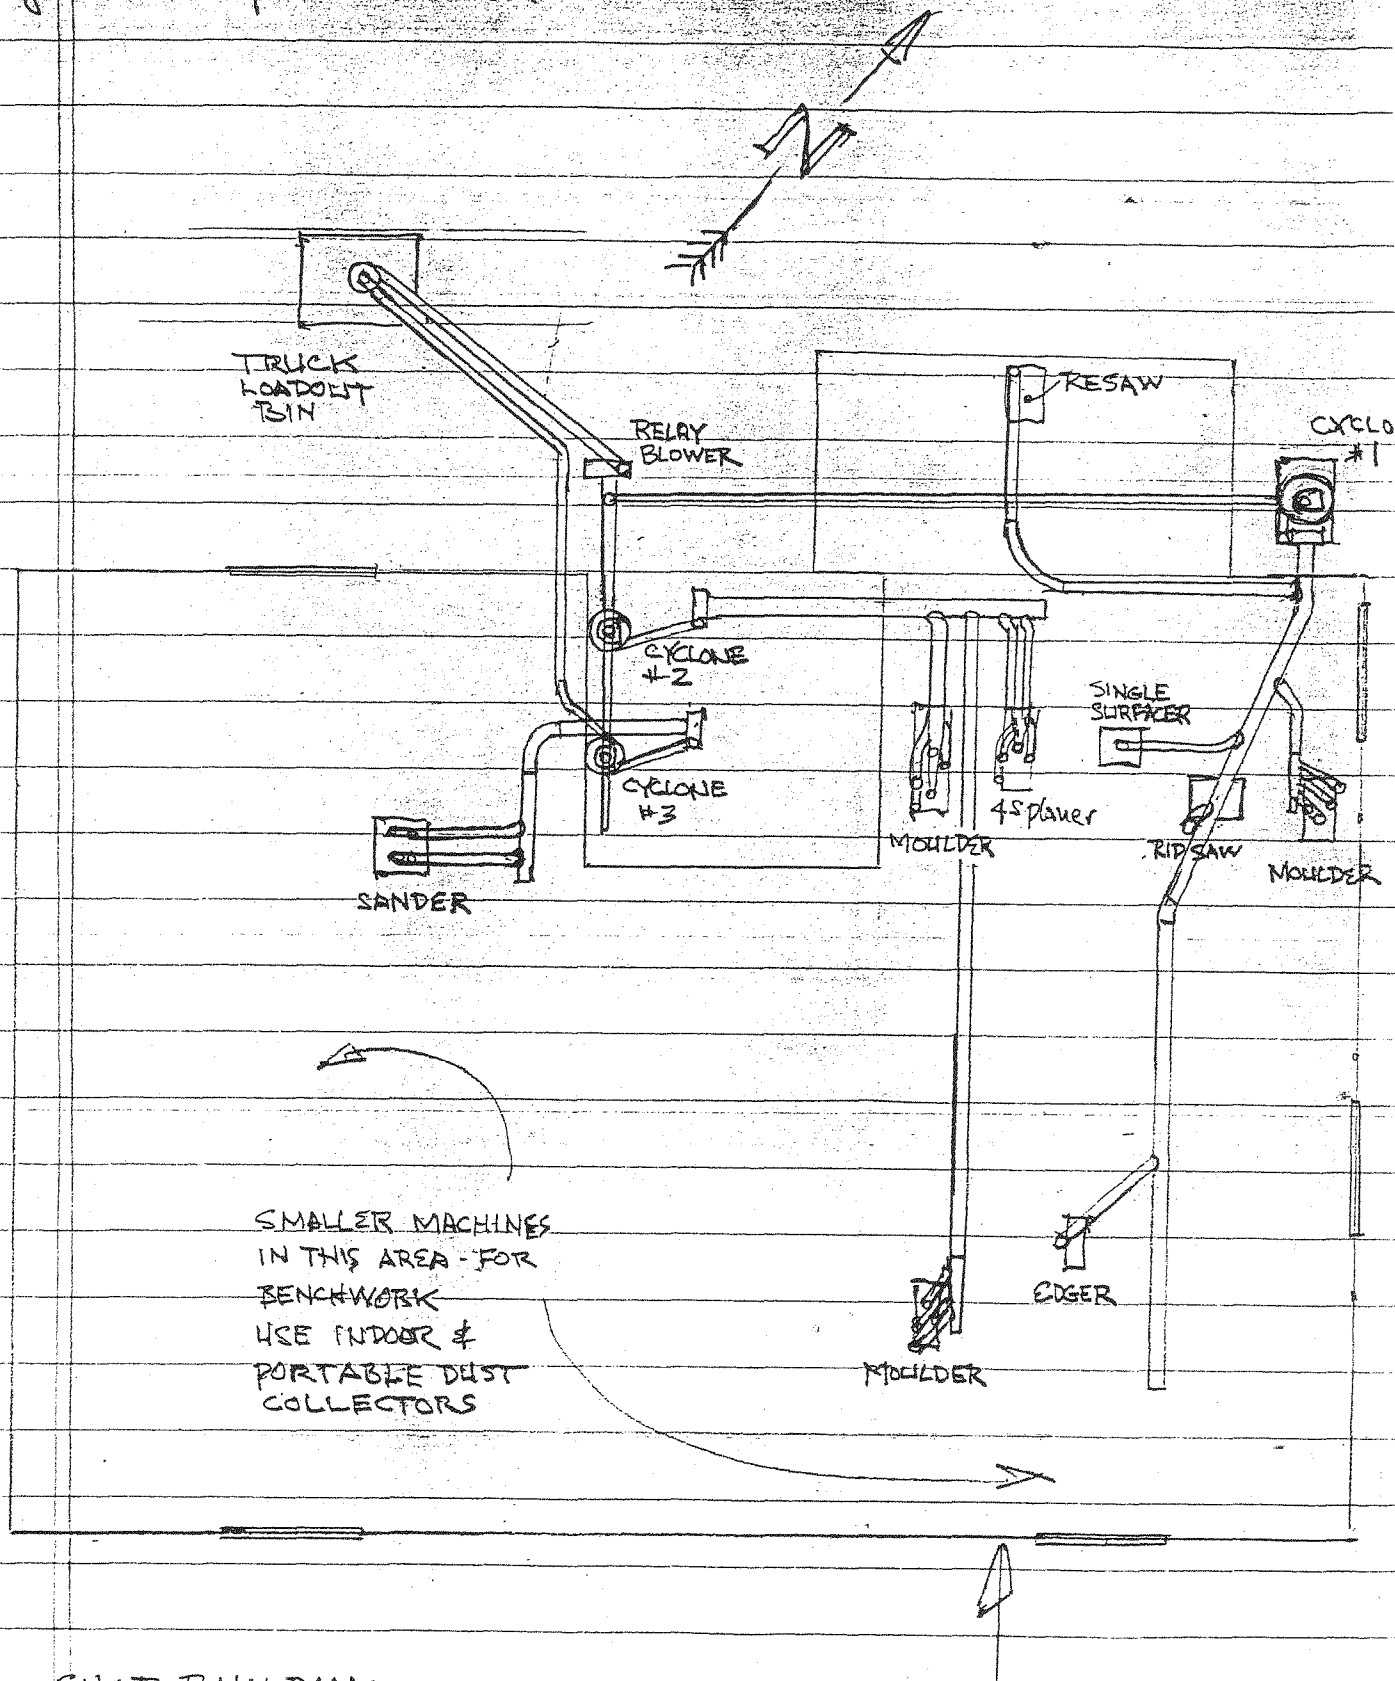 N
TRUCK
LOADOUT
BIN
RELAY
BLOWER
RESAW
CYCLO
#1
CYCLONE
#2
SINGLE
SURFACER
CYCLONE
#3
4S planer
MOULDER
RIP SAW
MOULDER
SANDER
SMALLER MACHINES
IN THIS AREA - FOR
BENCHWORK
USE INDOOR &
PORTABLE DUST
COLLECTORS
EDGER
MOULDER